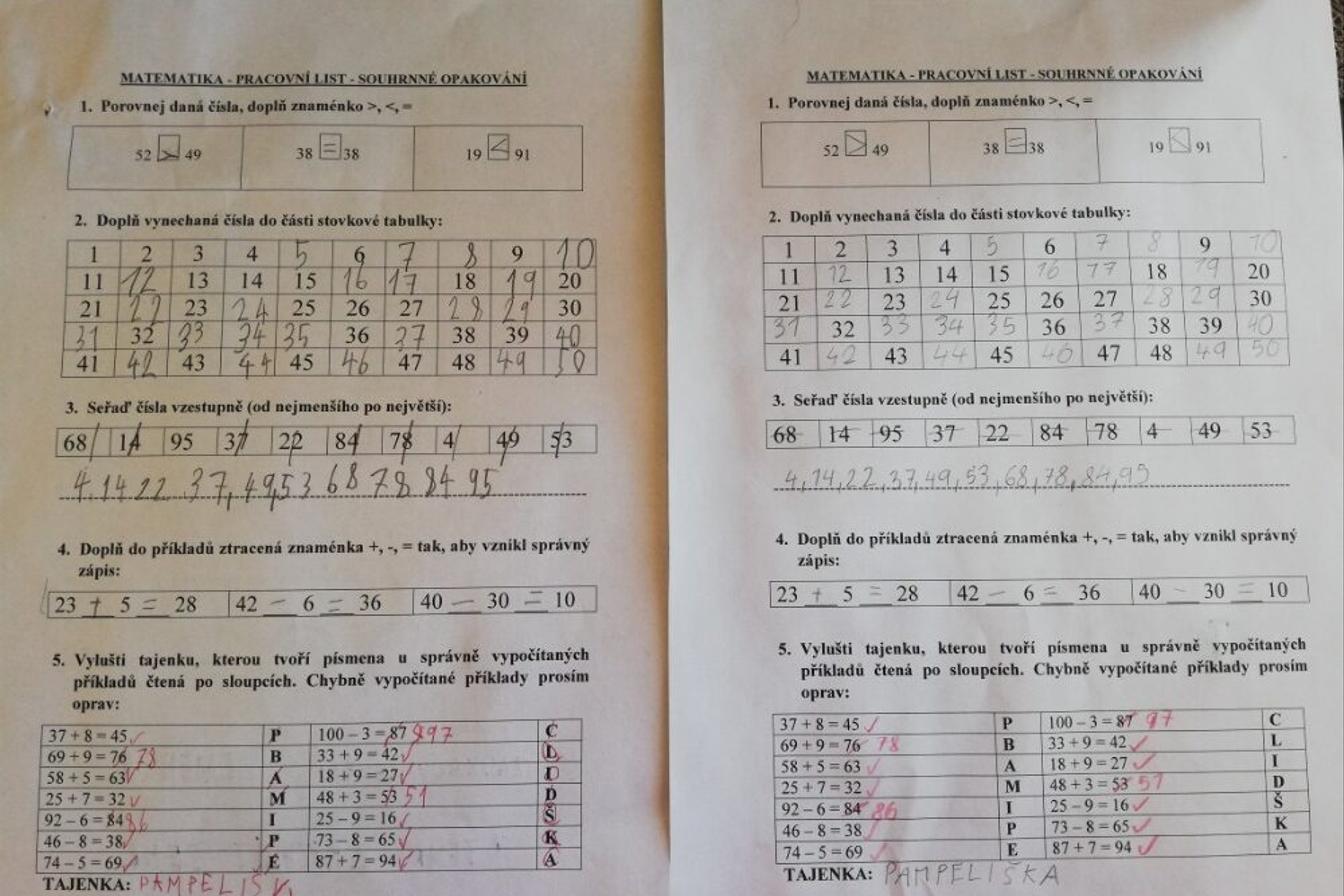 MATEMATIKA - PRACOVNÍ LIST - SOUHRNNÉ OPAKOVÁNÍ
1. Porovnej daná čísla, doplň znaménko >, <, =
52 > 49 38 = 38 19 < 91
2. Doplň vynechaná čísla do části stovkové tabulky:
1 2 3 4 5 6 7 8 9 10
11 12 13 14 15 16 17 18 19 20
21 22 23 24 25 26 27 28 29 30
31 32 33 34 35 36 37 38 39 40
41 42 43 44 45 46 47 48 49 50
3. Seřaď čísla vzestupně (od nejmenšího po největší):
68 14 95 37 22 84 78 4 49 53
4, 14 22 37, 49, 53 68 78 84 95
4. Doplň do příkladů ztracená znaménka +, -, = tak, aby vznikl správný
zápis:
23 + 5 = 28 42 - 6 = 36 40 - 30 = 10
5. Vylušti tajenku, kterou tvoří písmena u správně vypočítaných
příkladů čtená po sloupcích. Chybně vypočítané příklady prosím
oprav:
37 + 8 = 45 ✓ P 100 – 3 = 87 97 C
69 + 9 = 76 78 B 33 + 9 = 42 ✓ L
58 + 5 = 63 ✓ A 18 + 9 = 27 ✓ I
25 + 7 = 32 ✓ M 48 + 3 = 53 51 D
92 – 6 = 84 86 I 25 – 9 = 16 ✓ Š
46 – 8 = 38 ✓ P 73 – 8 = 65 ✓ K
74 – 5 = 69 ✓ E 87 + 7 = 94 ✓ A
TAJENKA: PAMPELIŠ
MATEMATIKA - PRACOVNÍ LIST - SOUHRNNÉ OPAKOVÁNÍ
1. Porovnej daná čísla, doplň znaménko >, <, =
52 > 49 38 = 38 19 < 91
2. Doplň vynechaná čísla do části stovkové tabulky:
1 2 3 4 5 6 7 8 9 10
11 12 13 14 15 16 17 18 19 20
21 22 23 24 25 26 27 28 29 30
31 32 33 34 35 36 37 38 39 40
41 42 43 44 45 46 47 48 49 50
3. Seřaď čísla vzestupně (od nejmenšího po největší):
68 14 95 37 22 84 78 4 49 53
4, 14, 22, 37, 49, 53, 68, 78, 84, 95
4. Doplň do příkladů ztracená znaménka +, -, = tak, aby vznikl správný
zápis:
23 + 5 = 28 42 - 6 = 36 40 - 30 = 10
5. Vylušti tajenku, kterou tvoří písmena u správně vypočítaných
příkladů čtená po sloupcích. Chybně vypočítané příklady prosím
oprav:
37 + 8 = 45 ✓ P 100 – 3 = 87 97 C
69 + 9 = 76 78 B 33 + 9 = 42 ✓ L
58 + 5 = 63 ✓ A 18 + 9 = 27 ✓ I
25 + 7 = 32 ✓ M 48 + 3 = 53 51 D
92 – 6 = 84 86 I 25 – 9 = 16 ✓ Š
46 – 8 = 38 ✓ P 73 – 8 = 65 ✓ K
74 – 5 = 69 ✓ E 87 + 7 = 94 ✓ A
TAJENKA: PAMPELIŠKA